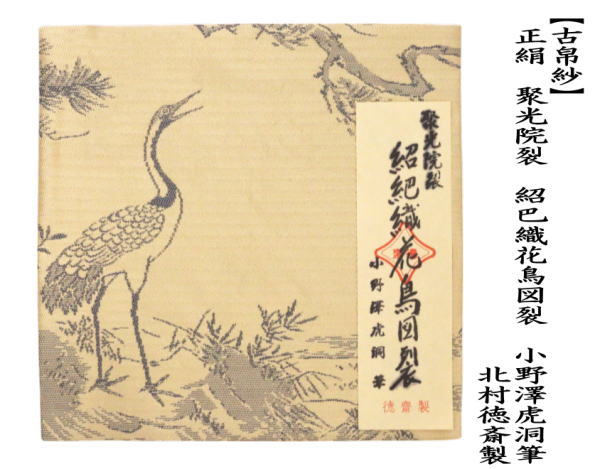 【古帛紗】
正絹　聚光院裂　紹巴織花鳥図裂　小野澤虎洞筆
北村徳斎製
聚光院裂
紹紦織花鳥図裂
小野澤虎洞筆
徳齋製